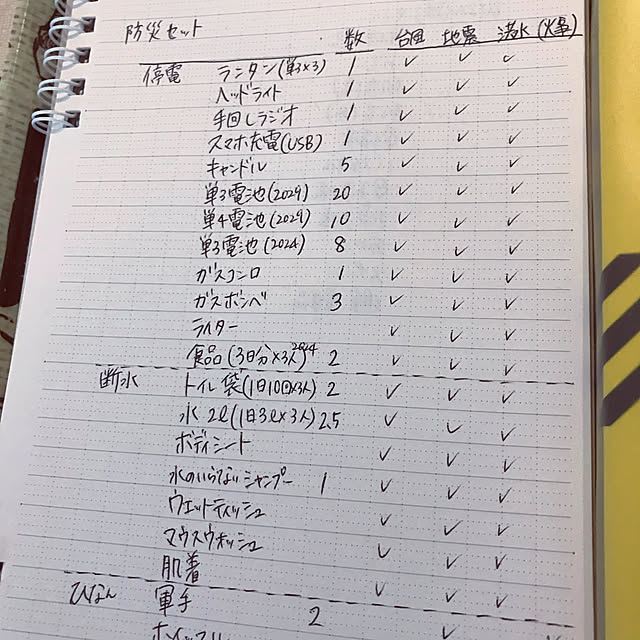 防災セット 数 台風 地震 洪水 (火事)
停電 ランタン(単3×3) 1 ✓ ✓ ✓
ヘッドライト 1 ✓ ✓ ✓
手回しラジオ 1 ✓ ✓ ✓
スマホ充電(USB) 1 ✓ ✓ ✓
キャンドル 5 ✓ ✓ ✓
単3電池(2029) 20 ✓ ✓ ✓
単4電池(2029) 10 ✓ ✓ ✓
単3電池(2024) 8 ✓ ✓ ✓
ガスコンロ 1 ✓ ✓ ✓
ガスボンベ 3 ✓ ✓ ✓
ライター ✓ ✓ ✓
食品(3日分×3人)2024 2 ✓ ✓ ✓
断水 トイレ袋(1日10回×3人) 2 ✓ ✓ ✓
水 2ℓ(1日3ℓ×3人) 2.5 ✓ ✓ ✓
ボディシート ✓ ✓ ✓
水のいらないシャンプー 1 ✓ ✓ ✓
ウェットティッシュ ✓ ✓ ✓
マウスウォッシュ ✓ ✓ ✓
肌着 ✓ ✓ ✓
ひなん 軍手 2 ✓ ✓ ✓